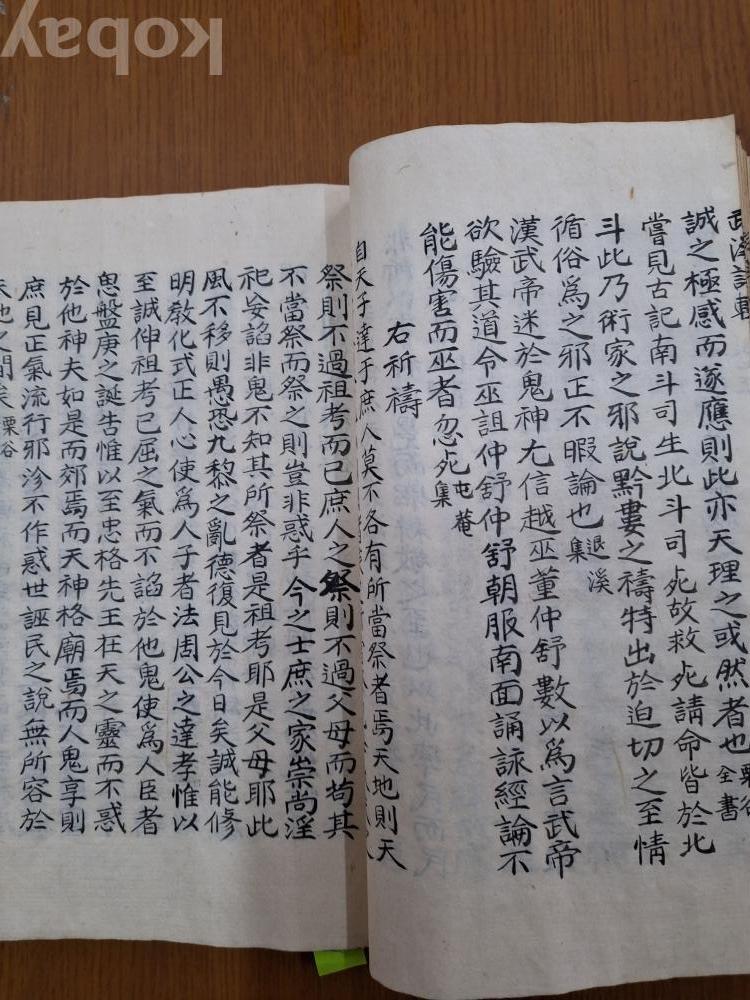 kobay
誠之極感而遂應則此亦天理之或然者也 栗谷全書
嘗見古記南斗司生北斗司死故救死請命皆於北
斗此乃術家之邪說黔婁之禱特出於迫切之至情
循俗爲之邪正不暇論也 退溪集
漢武帝迷於鬼神尤信越巫董仲舒數以爲言武帝
欲驗其道令巫詛仲舒仲舒朝服南面誦詠經論不
能傷害而巫者忽死 屯菴集
右祈禱
自天子達于庶人莫不各有所當祭者焉天地則天
祭則不過祖考而已庶人之祭則不過父母而苟其
不當祭而祭之則豈非惑乎今之士庶之家崇尚淫
祀妄諂非鬼不知其所祭者是祖考耶是父母耶此
風不移則愚恐九黎之亂德復見於今日矣誠能修
明敎化式正人心使爲人子者法周公之達孝惟以
至誠伸祖考已屈之氣而不諂於他鬼使爲人臣者
思盤庚之誕告惟以至忠格先王在天之靈而不惑
於他神夫如是而郊焉而天神格廟焉而人鬼享則
庶見正氣流行邪沴不作惑世誣民之說無所容於
天地之間矣 栗谷